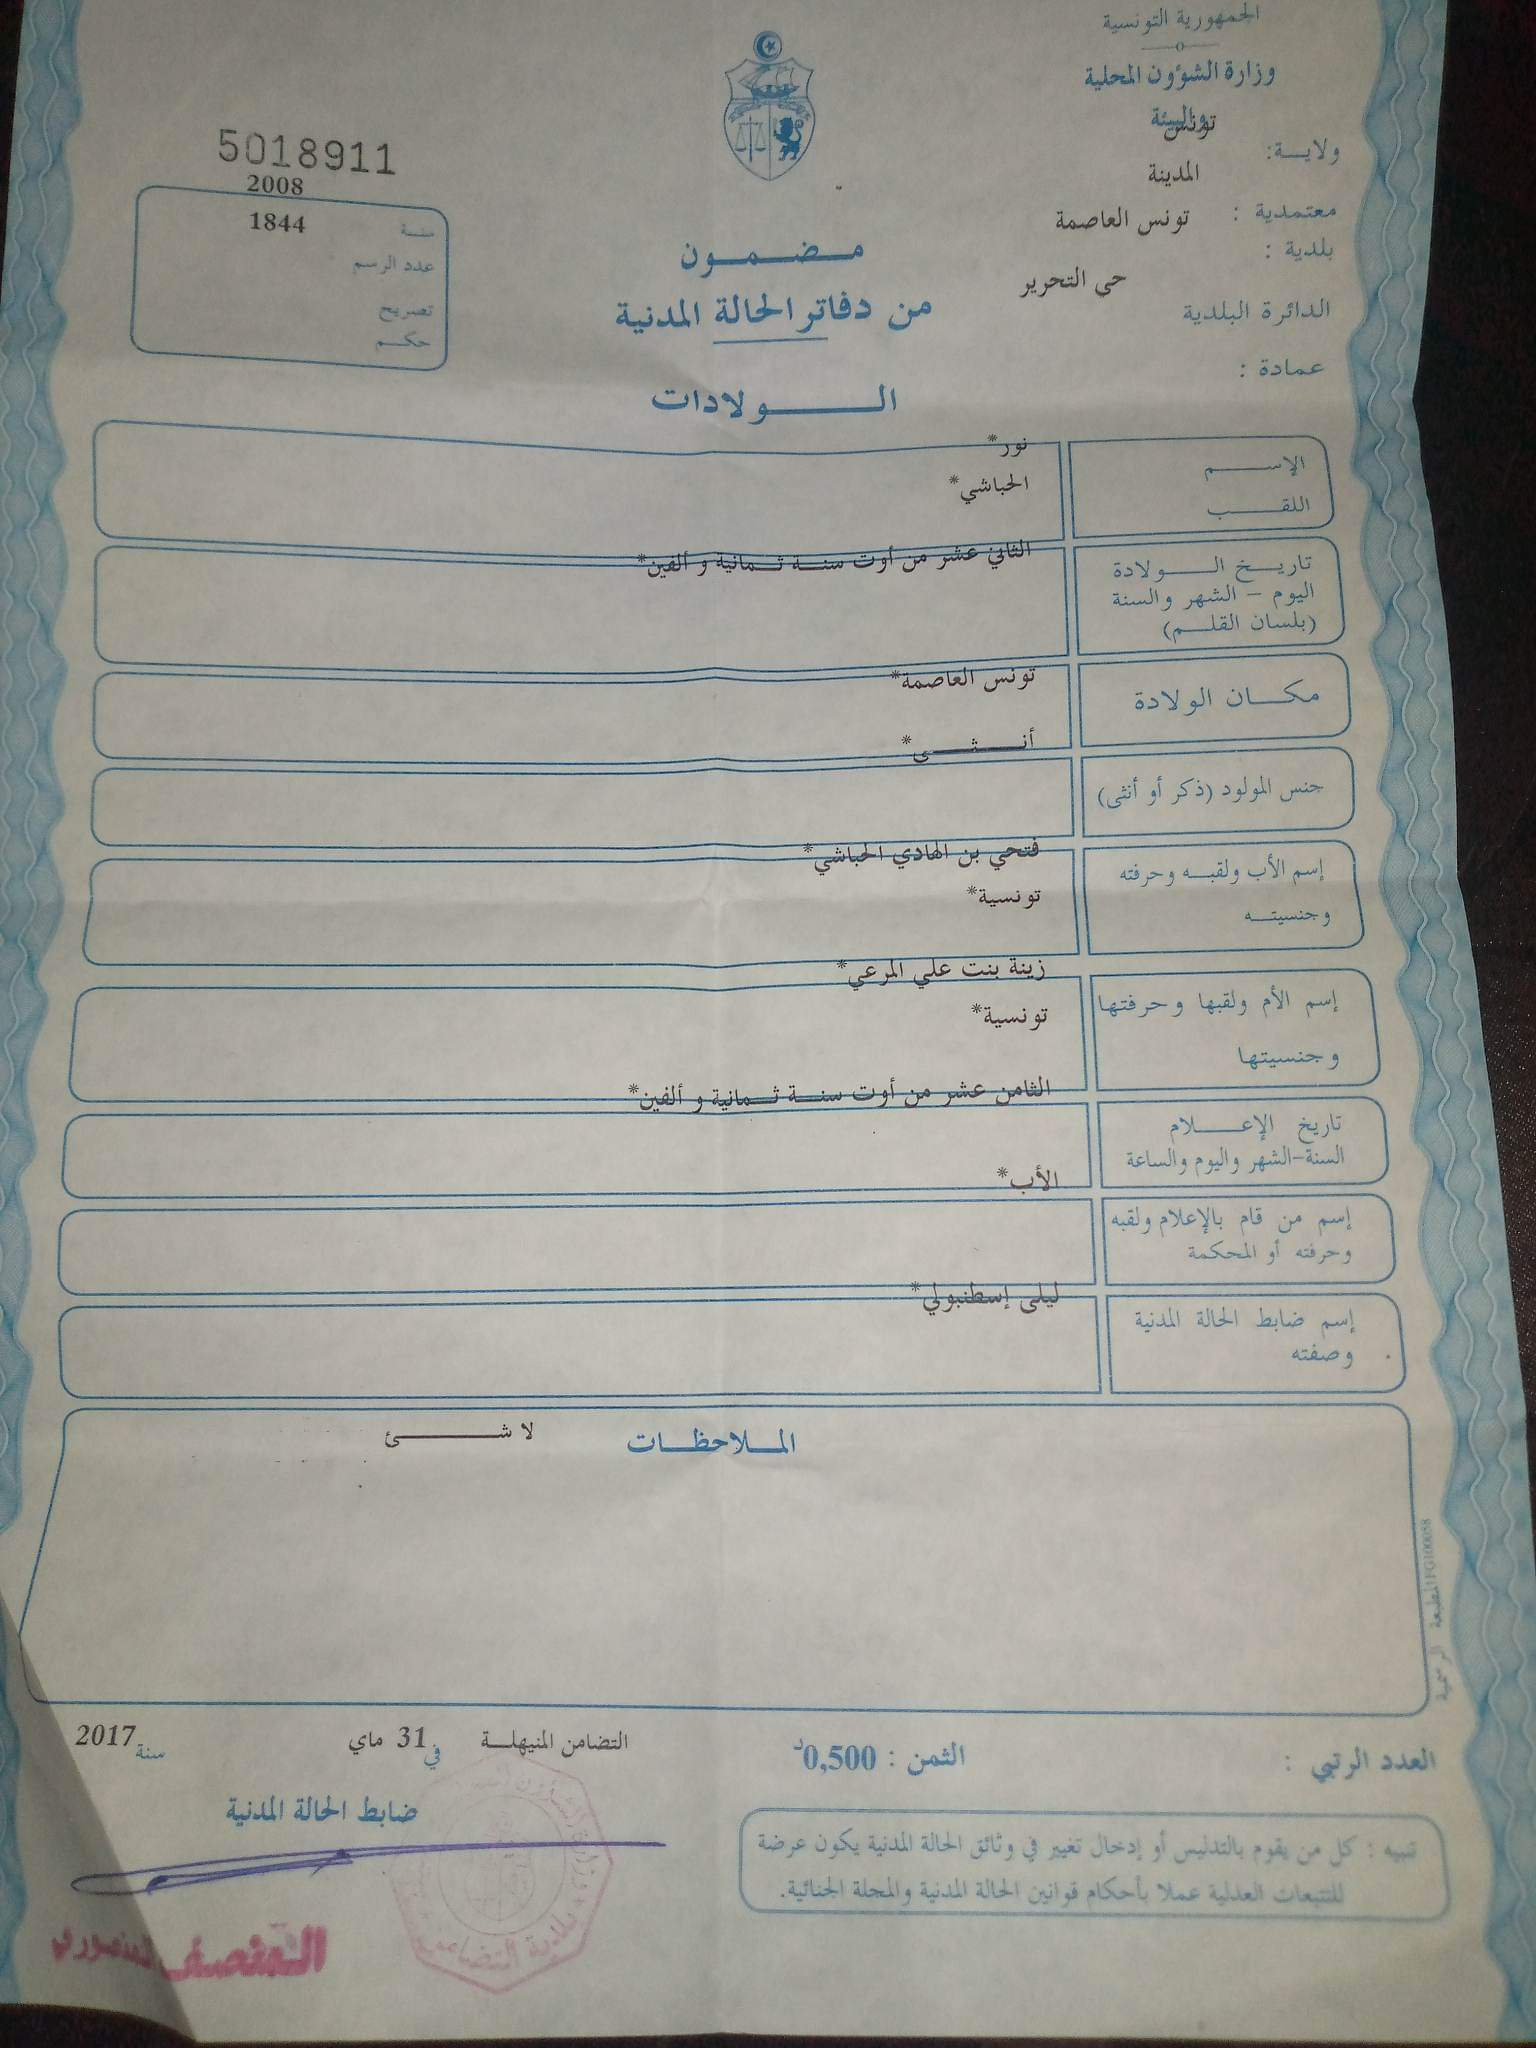 الجمهورية التونسية
وزارة الشؤون المحلية
والبيئة
ولايــة: تونس
المدينة
معتمدية : تونس العاصمة
بلدية :
الدائرة البلدية حى التحرير
عمادة :
5018911
2008
سنة 1844
عدد الرسم
تصريح
حكم
مـضـمـون
من دفاتر الحالة المدنية
الـولادات
الإسـم نور*
اللقـب الحباشي*
الثاني عشر من أوت سنة ثمانية و ألفين*
تاريـخ الـولادة
اليوم - الشهر والسنة
(بلسان القلـم)
تونس العاصمة*
مكـان الولادة
أنـثـى*
جنس المولود (ذكر أو أنثى)
فتحي بن الهادي الحباشي*
إسم الأب ولقبـه وحرفته
تونسية*
وجنسيتـه
زينة بنت علي المرعي*
إسم الأم ولقبها وحرفتها
تونسية*
وجنسيتها
الثامن عشر من أوت سنة ثمانية و ألفين*
تاريخ الإعـلام
السنة-الشهر واليوم والساعة
الأب*
إسم من قام بالإعلام ولقبه
وحرفته أو المحكمة
ليلى إسطنبولي*
إسم ضابط الحالة المدنية
وصفته
المـلاحظـات لا شـئ
المطبعة الرسمية
العدد الرتبي : الثمن : 0,500د
التضامن المنيهلـة في 31 ماي سنة 2017
ضابط الحالة المدنية
تنبيه : كل من يقوم بالتدليس أو إدخال تغيير في وثائق الحالة المدنية يكون عرضة
للتتبعات العدلية عملا بأحكام قوانين الحالة المدنية والمجلة الجنائية.
بلدية التضامن
المنصف المنصوري